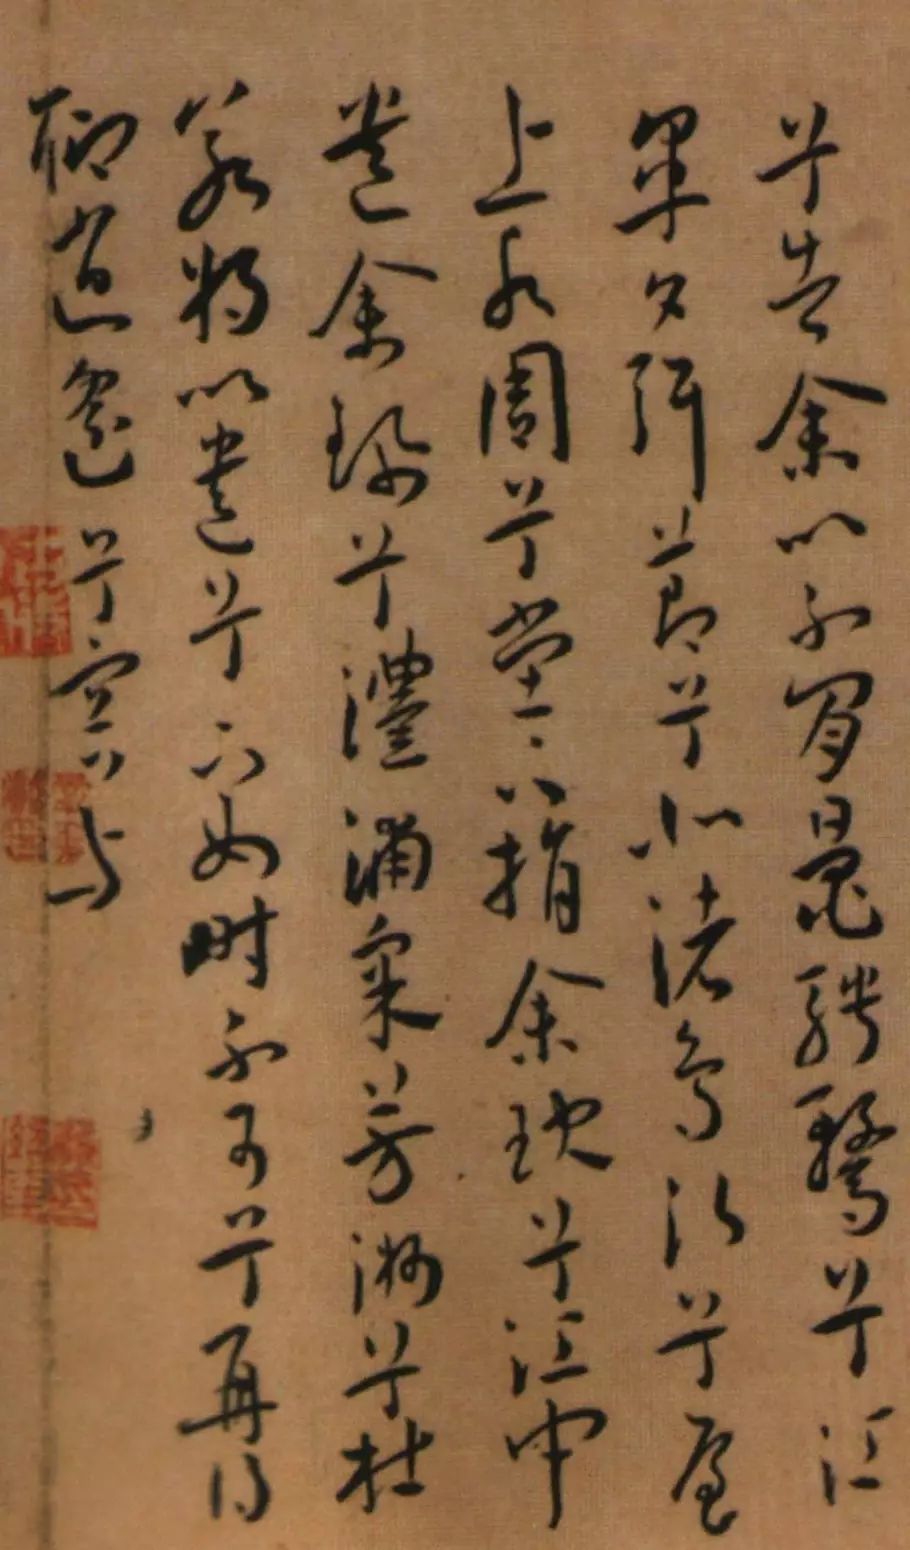 兮告余以不閒鼂騁騖兮江
皋夕弭節兮北渚鳥次兮屋
上水周兮堂下捐余玦兮江中
遺余珮兮澧浦采芳洲兮杜
若將以遺兮下女時不可兮再得
聊逍遙兮容與